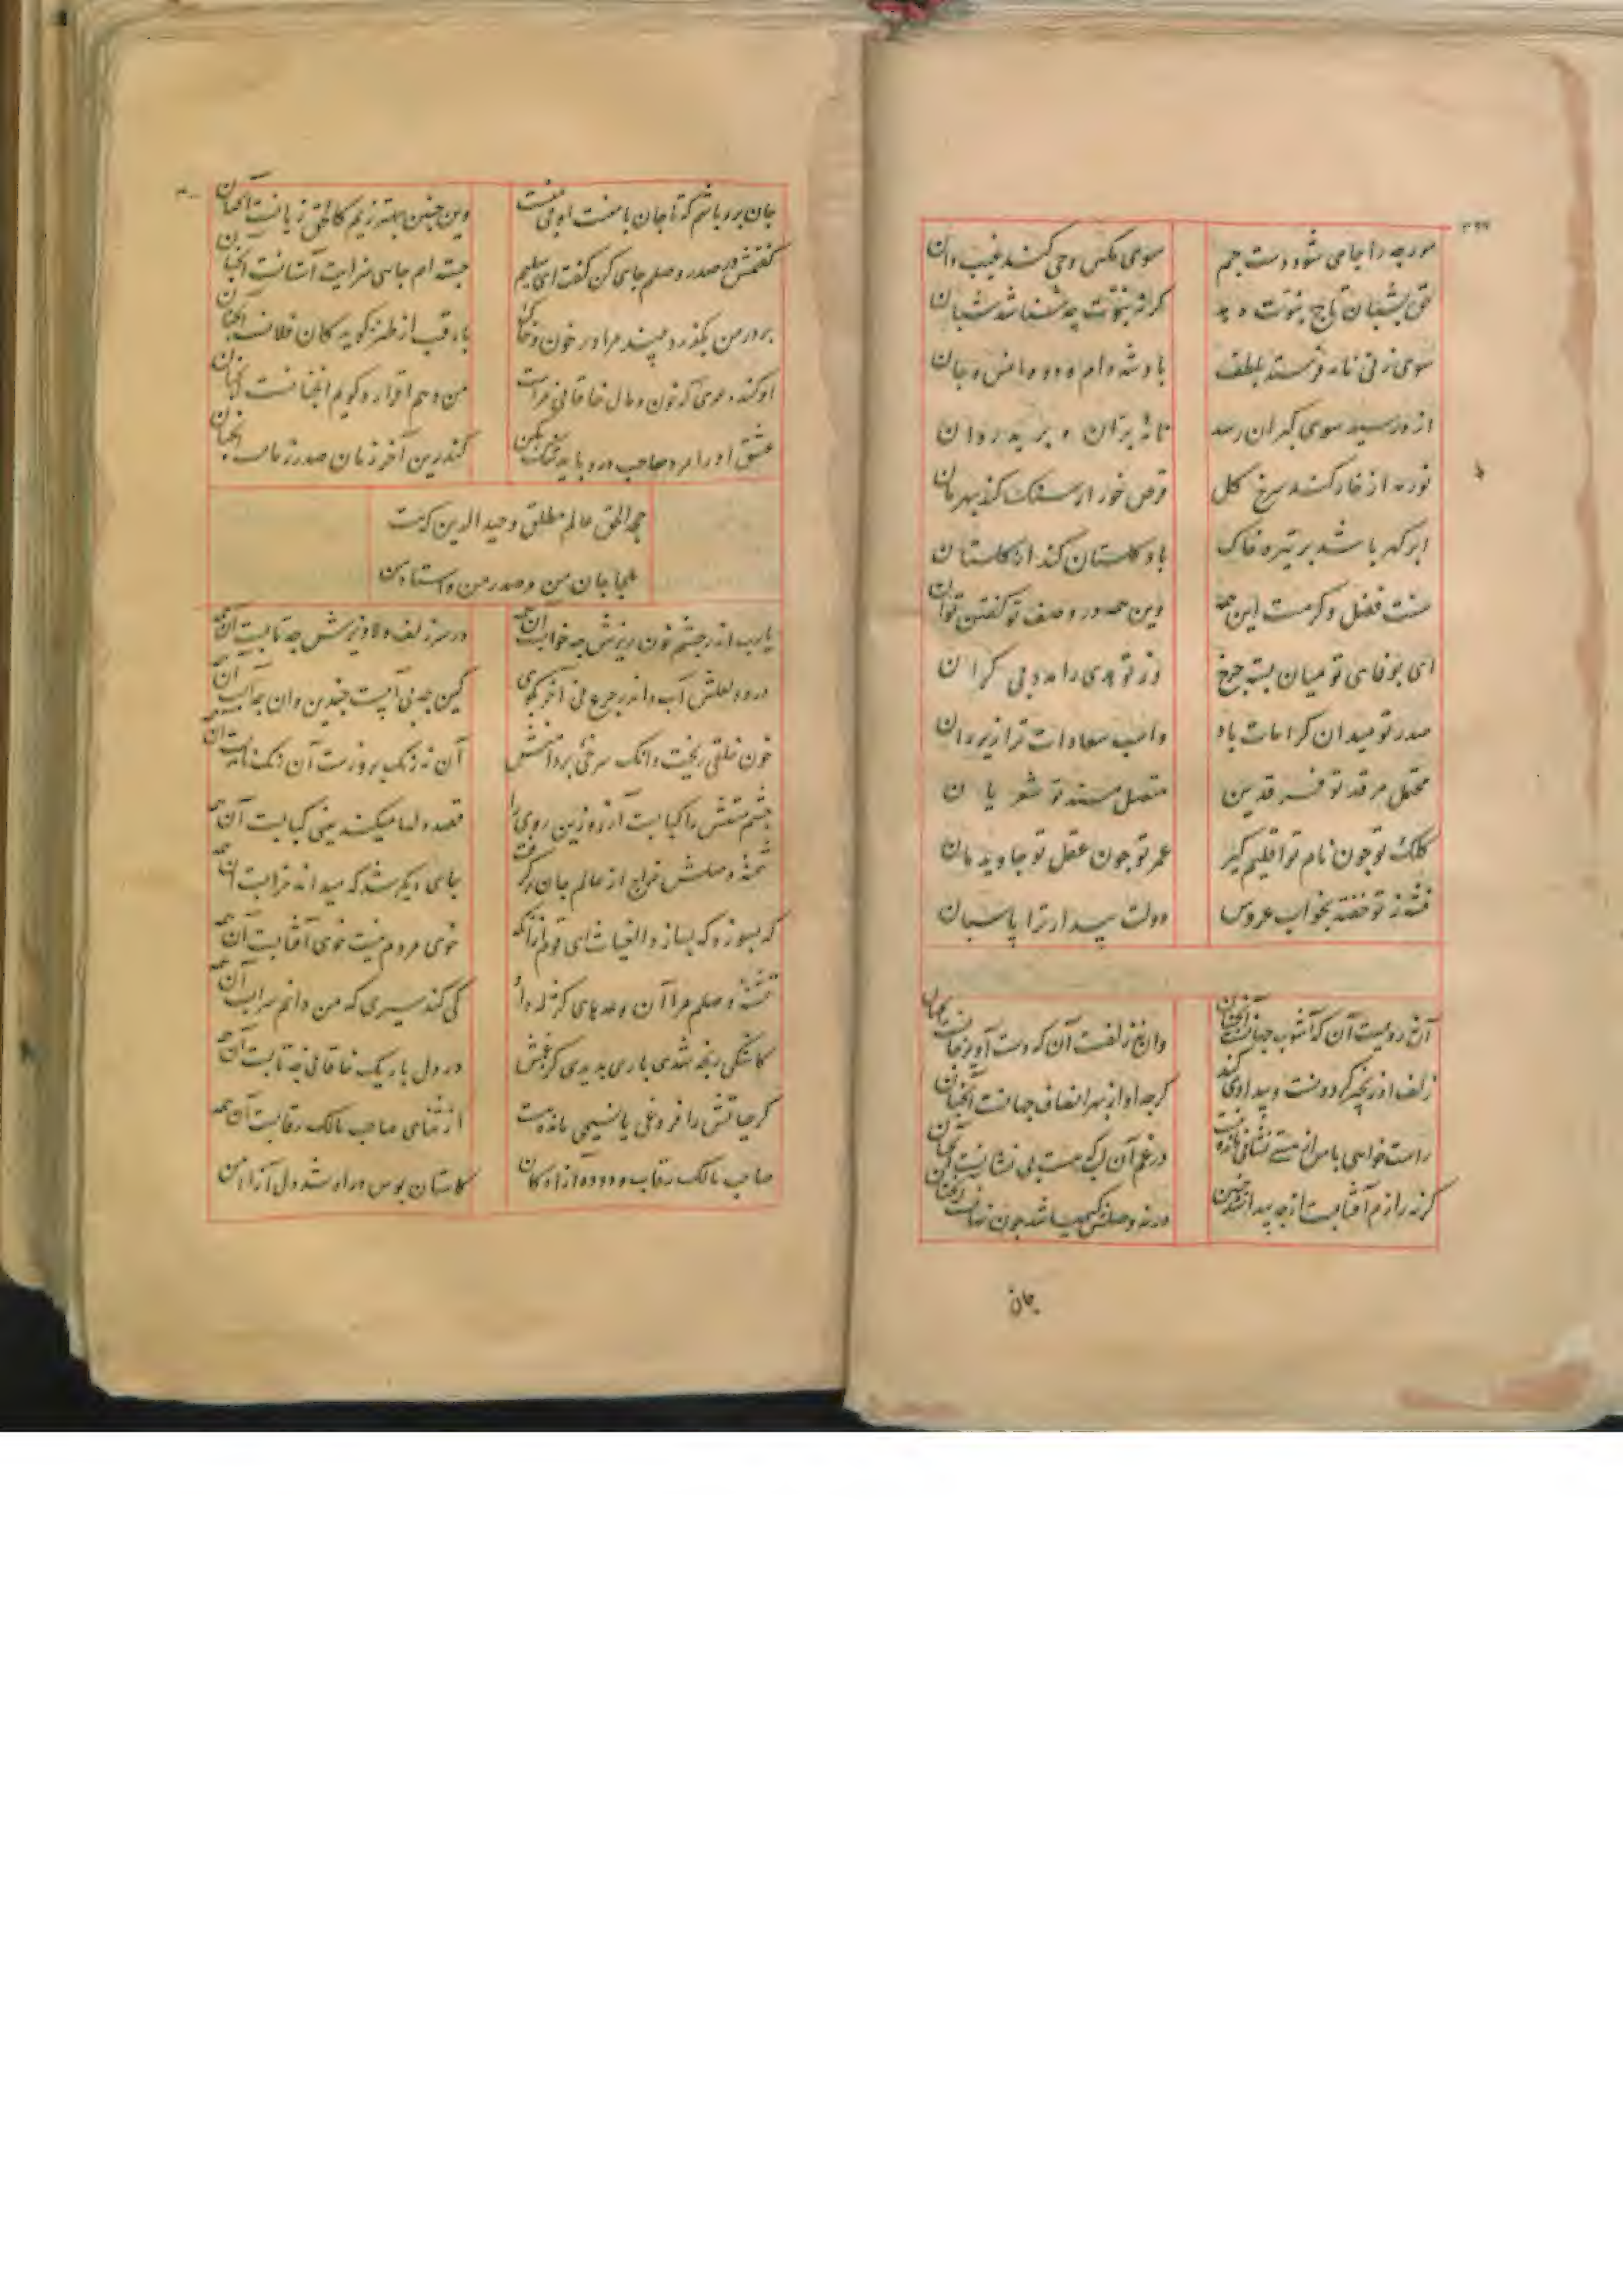 مورچه را جامی شود دست جم
سوی مکس وحی کند غیب دان
حق بشبان تاج نبوت دهد
کرنه نبوت چه شناسد شبان
سوی نی نامه فرستد بلطف
بادشه دام و دد و انس و جان
از در سید سوی کبران رسد
نامه بران و برید روان
نور مه از خار کند سرخ کل
قرص خور از سنک کند بهرمان
ابر کهر باشد بر تیره خاک
باد کلستان کند از کلستان
هست فضل و کرمت این همه
وین همه در وصف تو کفتن توان
ای بوفای تو میان بسته چرخ
وز تو هدی را مدد بی کران
صدر تو میدان کرامات باد
واسب سعادات ترا زیر ران
محتمل مرقد تو فرقدین
متصل مسند تو شعریان
کلک تو چون نام تو اقلیم کیر
عمر تو چون عقل تو جاویدمان
فتنه ز تو خفته بخواب عروس
دولت بیدار ترا پاسبان
آن نه رویست آن که آشوب جهانست آنچنان
وان نه زلفست آن که دست آویز جانست آنچنان
زلف او زنجیر کردونست و بیدادی کند
کرچه او از بهر انصاف جهانست آنچنان
راست خواهی با من از هستی نشانی مانده نیست
در غم آن لب که هست بی نشانست آنچنان
کرنه رازم آفتابست از چه پیدا شد چنین
ورنه وصلش کیمیا شد چون نهانست آنچنان
جان
جان برو پاشم که تا جان با منست او بی منست
وین چنین بهتر زیم کالحق زیانست آنچنان
کفتمش در صدر وصلم جای کن کفت ای سلیم
جسته ام جای سزایت آستانست آنچنان
بر در من بکذرد بیند مرا در خون و خاک
با رقیب از طنز کوید کان فلانست آنچنان
او کند دعوی که خون و مال خاقانی مراست
من دهم اقرار و کویم آنچنانست آنچنان
عشق او را مرد صاحب درد باید شک مکن
کندرین آخر زمان صدر زمانست آنچنان
حجة الحق عالم مطلق وحید الدین که هست
ملجاء جان من و صدر من و استاد من
یارب اندر چشم خون ریزش چه خوابست آن همه
در سر زلف دلاویزش چه تابست آن همه
در دو لعلش آب و اندر جزع نی آخر بکوی
کین چه بی آبیست چندین وان چه آبست آن
خون خلقی ریخت وانک سرخی بر دامنش
چشم مستش را کبابست آرزو زین روی را
قصد دلها میکند یعنی کبابست آن همه
شحنه وصلش خراج از عالم جان بر کرفت
جای دیکر شد که میداند خرابست آن همه
که بسوزد که بسازد الغیاث ای قوم ازانکه
خوی مردم نیست خوی آفتابست آن همه
تشنه وصلم مرا آن وعدهای کژ که داد
کی کند سیری که من دانم سرابست آن
کاشکی رنجه شدی باری بدیدی کز غمش
در دل باریک خاقانی چه تابست آن همه
کر حیاتش را فروغی یا نسیمی مانده است
از ثنای صاحب مالک رقابست آن همه
صاحب مالک رقاب دودۀ آزادکان
کاستان بوس در او شد دل آزاد من